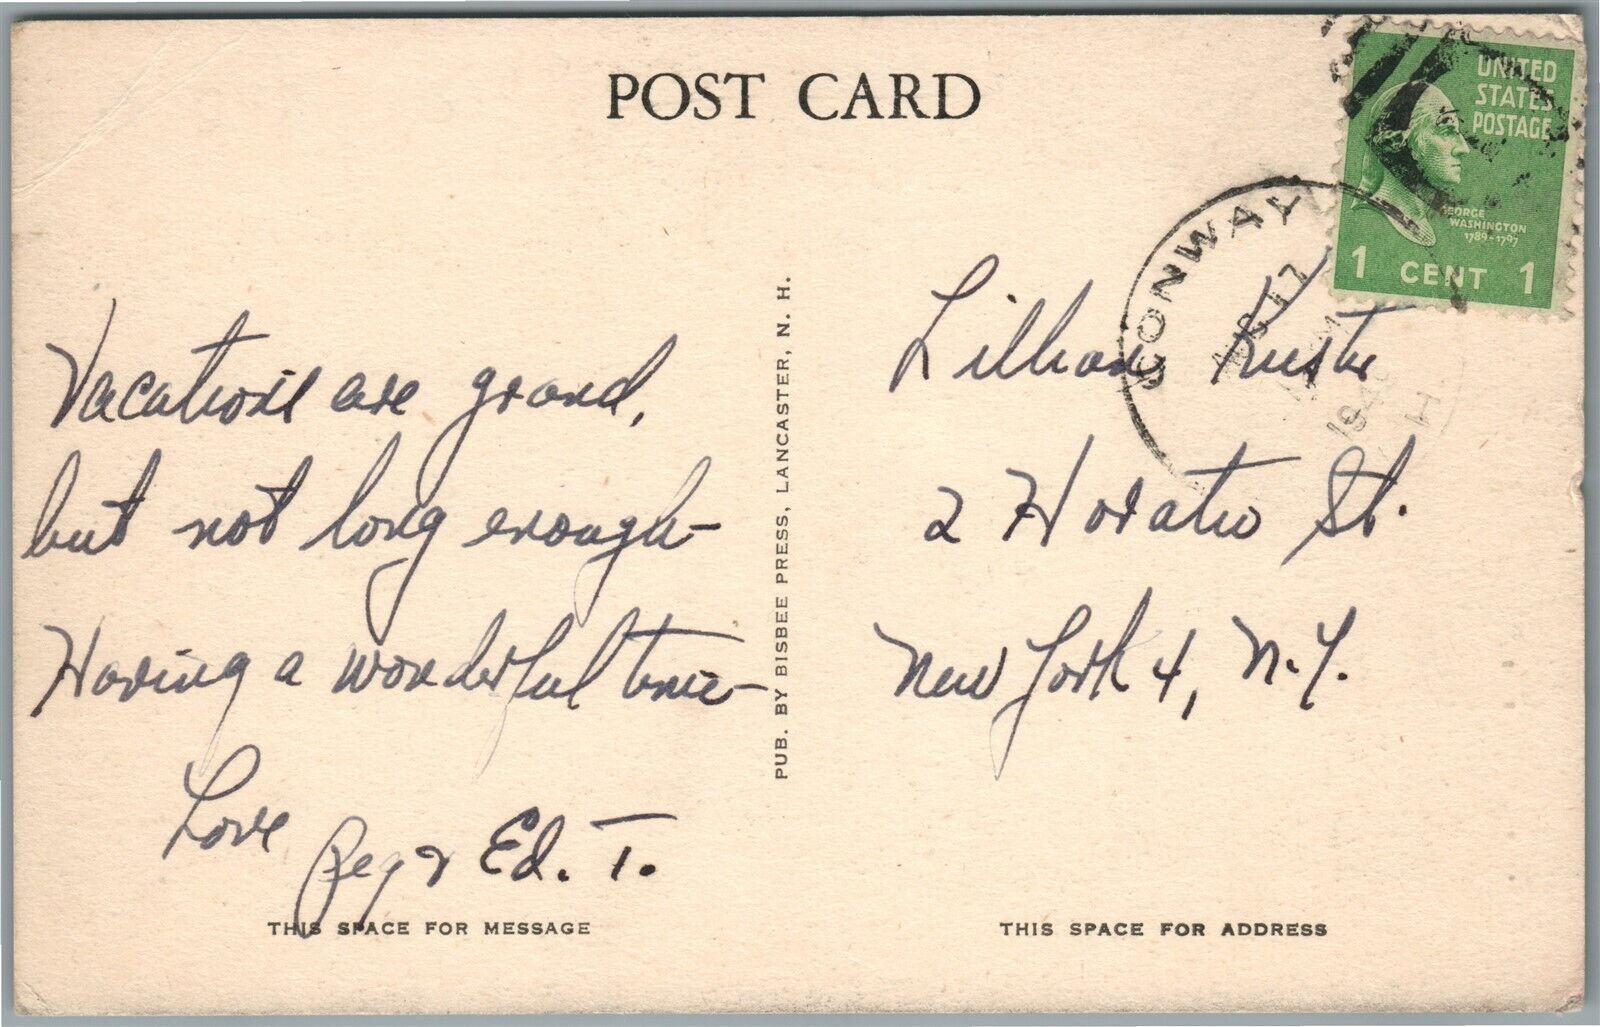 POST CARD
UNITED
STATES
POSTAGE
GEORGE
WASHINGTON
1789-1797
1 CENT 1
CONWAY
17
H
Vacations are grand,
but not long enough-
Having a wonderful time-
Love
Peg & Ed. T.
PUB. BY BISBEE PRESS, LANCASTER, N. H.
Lillian
2 Horatio St.
New York 4, N.Y.
THIS SPACE FOR MESSAGE
THIS SPACE FOR ADDRESS